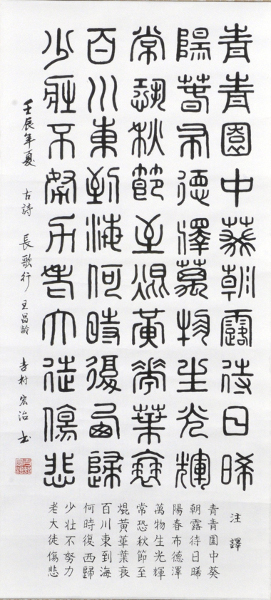 青青園中葵朝露待日晞
陽春布德澤萬物生光輝
常恐秋節至焜黃華葉衰
百川東到海何時復西歸
少壯不努力老大徒傷悲
壬辰年夏 古詩 長歌行 王昌齡 吉村宏治书
注譯
青青園中葵
朝露待日晞
陽春布德澤
萬物生光輝
常恐秋節至
焜黃華葉衰
百川東到海
何時復西歸
少壯不努力
老大徒傷悲